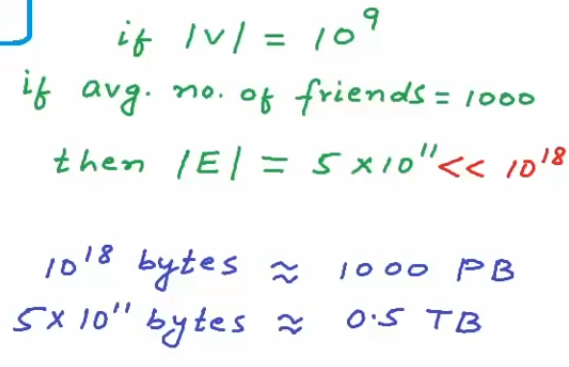 if |V| = 10⁹
if avg. no. of friends = 1000
then |E| = 5 x 10¹¹ << 10¹⁸
10¹⁸ bytes ≈ 1000 PB
5 x 10¹¹ bytes ≈ 0.5 TB